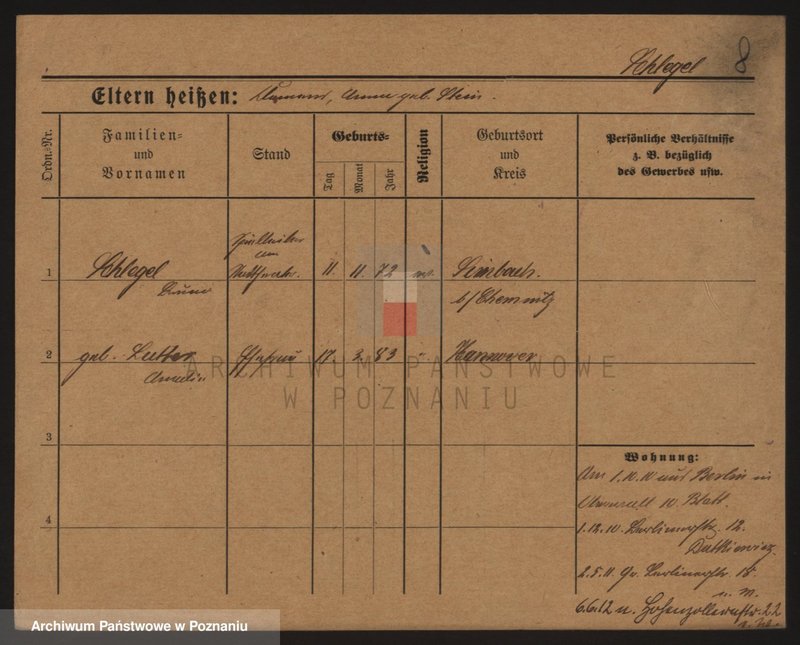 Schlegel 8
Eltern heißen: Anna geb. Stein.
Ordn.-Nr.
Familien-
und
Vornamen
Stand
Geburts-
Tag
Monat
Jahr
Religion
Geburtsort
und
Kreis
Persönliche Verhältnisse
z. B. bezüglich
des Gewerbes usw.
1 Schlegel 11. 11. 72 Limbach.
b/Chemnitz
2 geb. Lutter Ehefrau 17. 2. 83 " Hannover
3
4
Wohnung:
Am 1.10.10 aus Berlin in
10 Blatt.
1.12.10. Berlinerstr. 12.
Dutkiewicz.
2.5.11 Gr. Berlinerstr. 18.
6.6.12 n. Hohenzollernstr. 22
ARCHIWUM PAŃSTWOWE
W POZNANIU
Archiwum Państwowe w Poznaniu